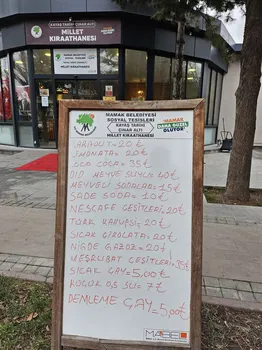 KAYAŞ TARİHİ ÇINAR ALTI
MİLLET
KIRAATHANESİ
MAMAK BELEDİYESİ
SOSYAL TESİSLERİ
KAYAŞ TARİHİ
ÇINAR ALTI
MİLLET KIRAATHANESİ
MAMAK
DAHA GÜZEL
OLUYOR
LİMONATA = 20₺
COCA COCA = 35₺
DİD. MEYVE SUYU = 40₺
MEYVELİ SODALAR = 15₺
SADE SODA = 10₺
NESCAFE ÇEŞİTLERİ = 20₺
TÜRK KAHVESİ = 20₺
SICAK ÇİKOLATA = 20₺
NİĞDE GAZOZ = 20₺
MEŞRUBAT ÇEŞİTLERİ = 35₺
SICAK ÇAY = 5,00₺
KÜÇÜK 0,5 SU = 7₺
DEMLEME ÇAY = 5,00₺